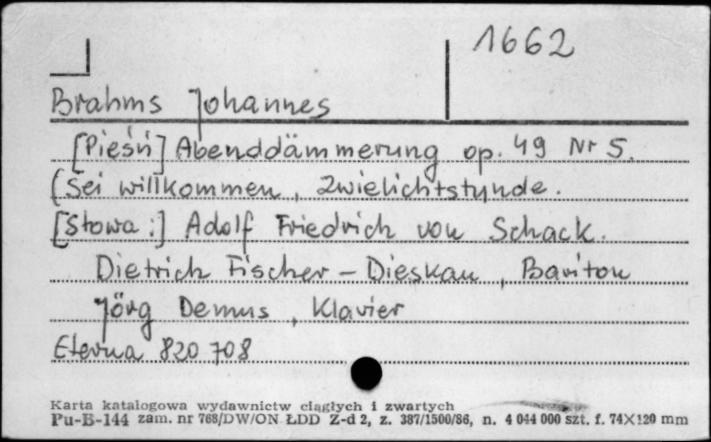 1662
Brahms Johannes
[Pieśń] Abenddämmerung op. 49 Nr 5.
(Sei willkommen, Zwielichtstunde.
[Słowa:] Adolf Friedrich von Schack.
Dietrich Fischer-Dieskau, Bariton
Jörg Demus, Klavier
Eterna 820 708
Karta katalogowa wydawnictw ciągłych i zwartych
Pu-B-144 zam. nr 768/DW/ON ŁDD Z-d 2, z. 387/1500/86, n. 4 044 000 szt. f. 74X120 mm